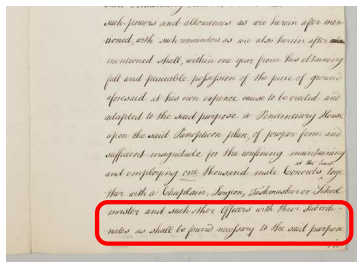 such powers and allowances as are herein after men-
tioned, with such remainders as are also herein after
mentioned shall, within one year from his obtaining
full and peaceable possession of the piece of ground
aforesaid at his own expence cause to be erected and
adapted to the said purpose a Penitentiary House
upon the said Panopticon plan, of proper form and
sufficient magnitude for the confining maintaining
at the least
and employing one thousand male Convicts, toge-
ther with a Chaplain, Surgeon, Taskmaster or School
master and such other Officers with their subordi-
nates as shall be found necessary to the said purpose